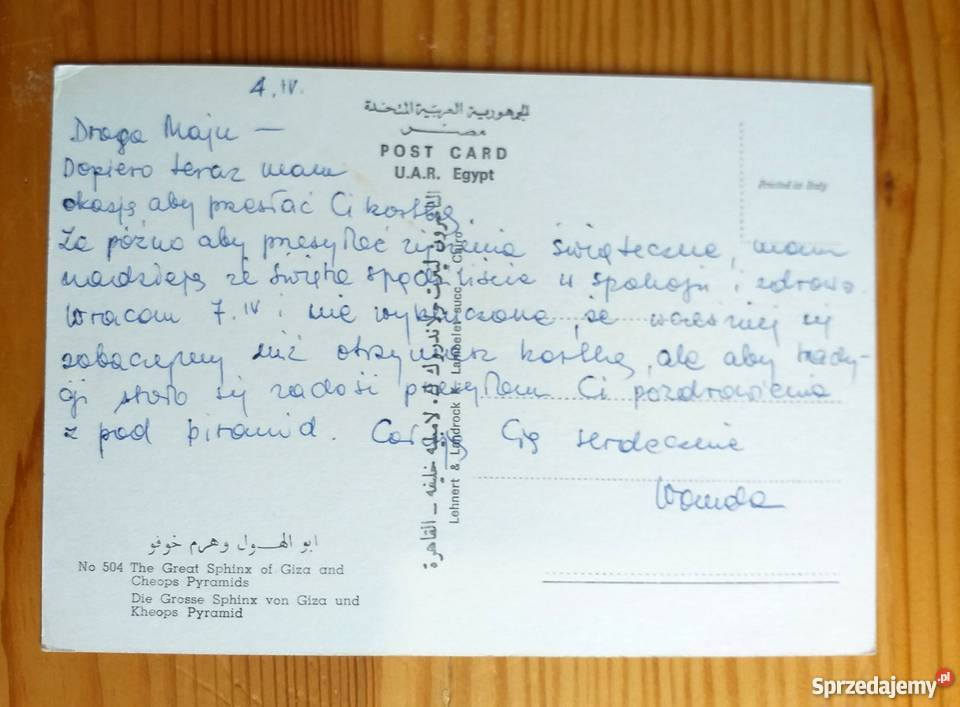 4.IV.
الجمهورية العربية المتحدة
مصر
POST CARD
U.A.R. Egypt
Printed in Italy
Droga Maju —
Dopiero teraz mam
okazję, aby przesłać Ci kartkę.
Za późno aby przesyłać życzenia świąteczne, mam
nadzieję że święta spędziliście w spokoju i zdrowo.
Wracam 7.IV i nie wykluczone, że wcześniej się
zobaczymy niż otrzymasz kartkę, ale aby trady-
cji stało się zadość przesyłam Ci pozdrowienia
z pod piramid. Całuję Cię serdecznie
Wanda
Lehnert & Landrock K. Lambelet succ. Cairo
لاندروك ك. لامبليه خليفه - القاهرة
ابو الهول وهرم خوفو
No 504 The Great Sphinx of Giza and
Cheops Pyramids
Die Grosse Sphinx von Giza und
Kheops Pyramid
Sprzedajemy.pl